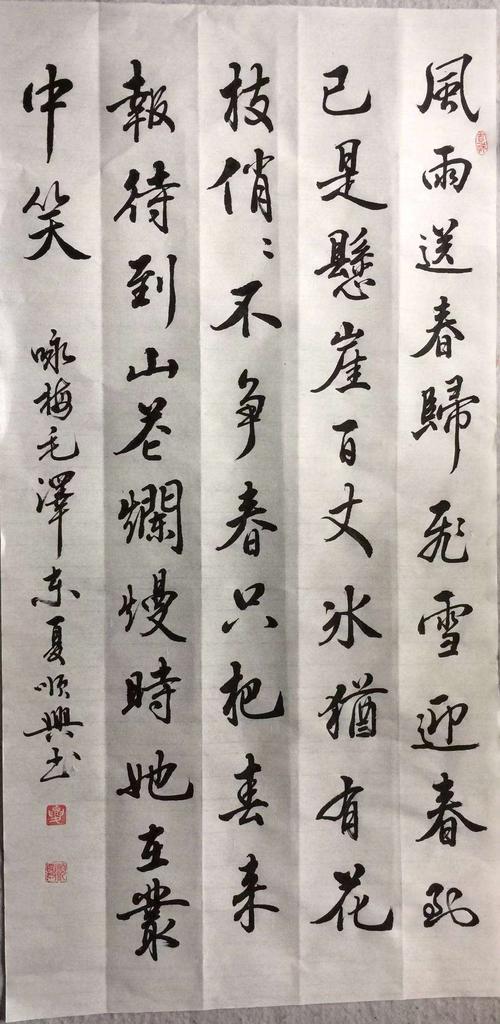 風雨送春歸飛雪迎春到
已是懸崖百丈冰猶有花
枝俏〻不争春只把春来
報待到山花爛熳時她在叢
中笑
咏梅毛澤东夏順興书